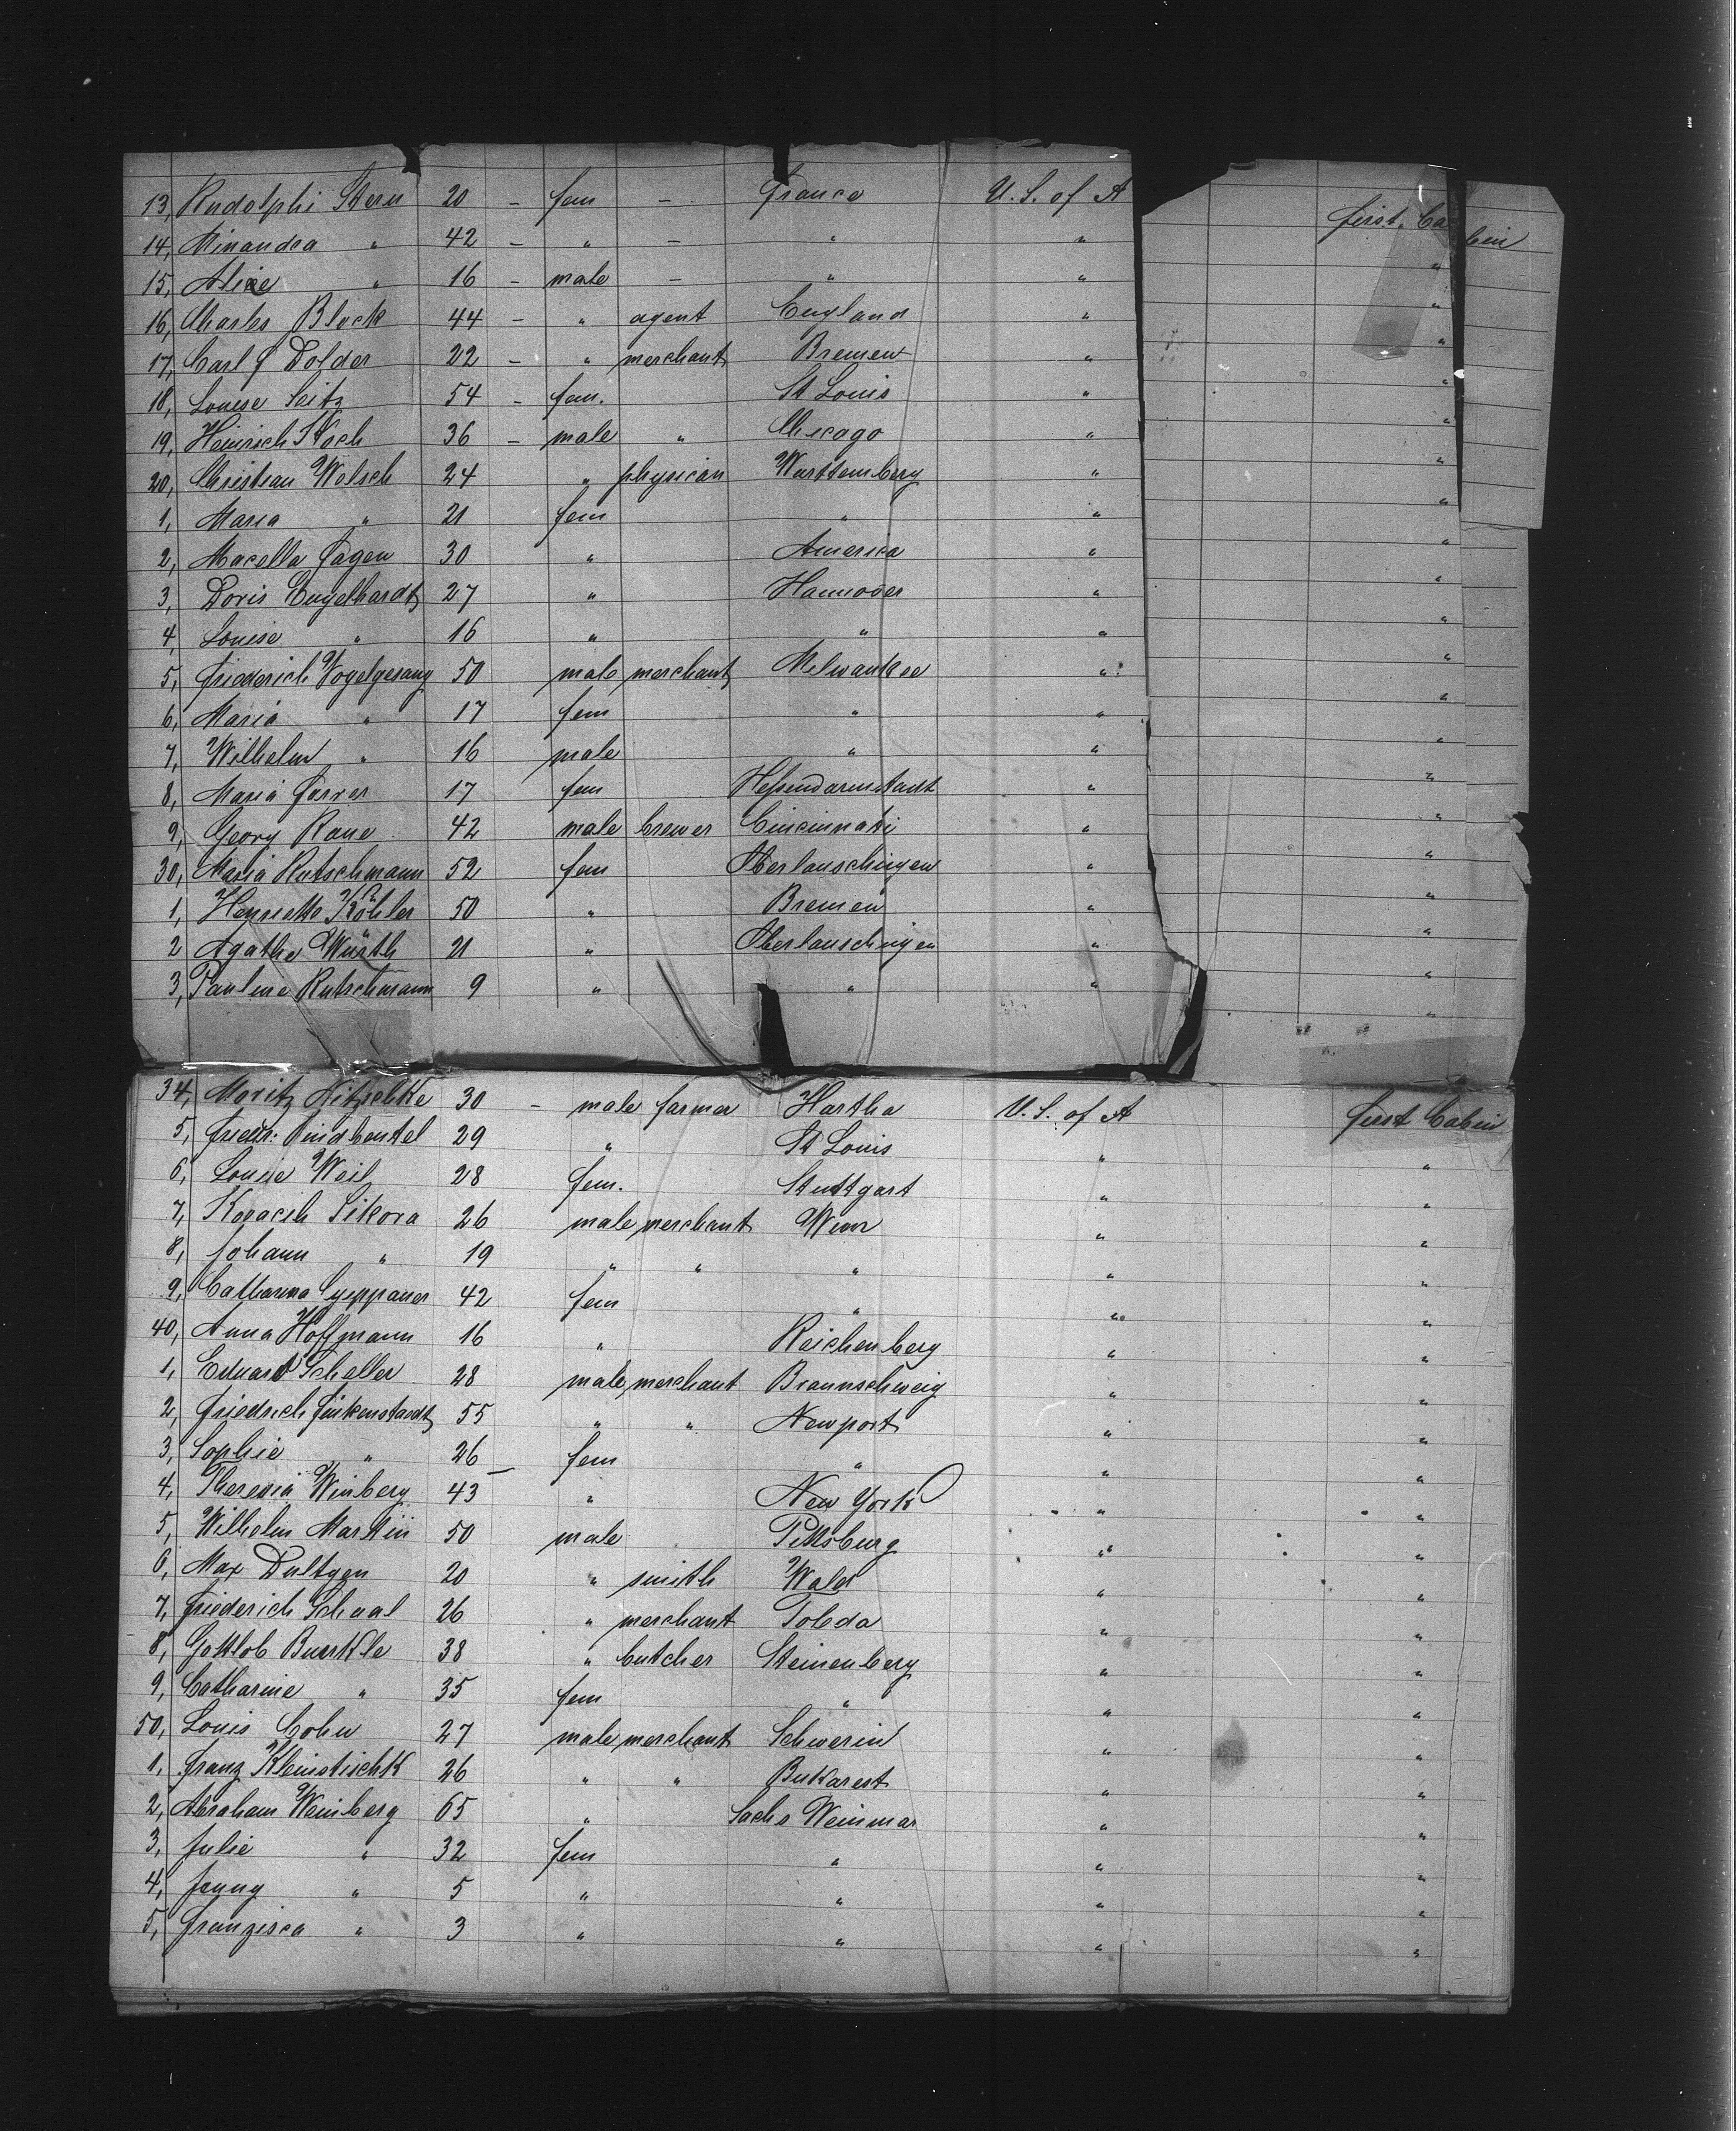 13, Rudolphi Stern 20 - fem - France U. S. of A first Cabin
14, Minandea " 42 - " - " " "
15, Alice " 16 - male - " " "
16, Charles Block 44 - " agent England " "
17, Carl J Dolder 22 - " merchant Bremen " "
18, Louise Seitz 54 - fem. St Louis " "
19, Heinrich Koch 36 - male " Chicago " "
20, Christian Welsch 24 " physician Württemberg " "
1, Maria " 21 fem " " "
2, Macella Fagen 30 " America " "
3, Doris Engelhardt 27 " Hannover " "
4, Louise " 16 " " " "
5, Friederich Vogelgesang 50 male merchant Milwaukee " "
6, Maria " 17 fem " " "
7, Wilhelm " 16 male " " "
8, Maria Farrer 17 fem Hessendarmstadt " "
9, Georg Raue 42 male brewer Cincinnati " "
30, Maria Rutschmann 52 fem Oberlauschingen " "
1, Henriette Köhler 50 " Bremen " "
2 Agathe Würth 21 " Oberlauschingen " "
3, Pauline Rutschmann 9 " " " "
34, Moritz Nitzschke 30 - male farmer Hartha U. S. of A first Cabin
5, Friedr: Windbeutel 29 " St Louis " "
6, Louise Weil 28 fem. Stuttgart " "
7, Sikora 26 male merchant Wien " "
8, Johann " 19 " " " " "
9, Catharina 42 fem " " "
40, Anna Hoffmann 16 " Reichenberg " "
1, Eduard Scheller 28 male merchant Braunschweig " "
2, Friedrich Finkenstaedt 55 " " Newport " "
3, Sophie " 26 fem " " "
4, Theresia Winberg 43 " New York " "
5, Wilhelm Martin 50 male Pittsburg " "
6, Max Dultgen 20 " smith Wald " "
7, Friederich Schaal 26 " merchant Toledo " "
8, Gottlob Buerkle 38 " butcher Steinenberg " "
9, Catharine " 35 fem " " "
50, Louis Cohn 27 male merchant Schwerin " "
1, Franz Kleinotischk 26 " " Bukarest " "
2, Abraham Weinberg 65 " Sachs Weinmar " "
3, Julie " 32 fem " " "
4, Jenny " 5 " " " "
5, Franzisca " 3 " " " "